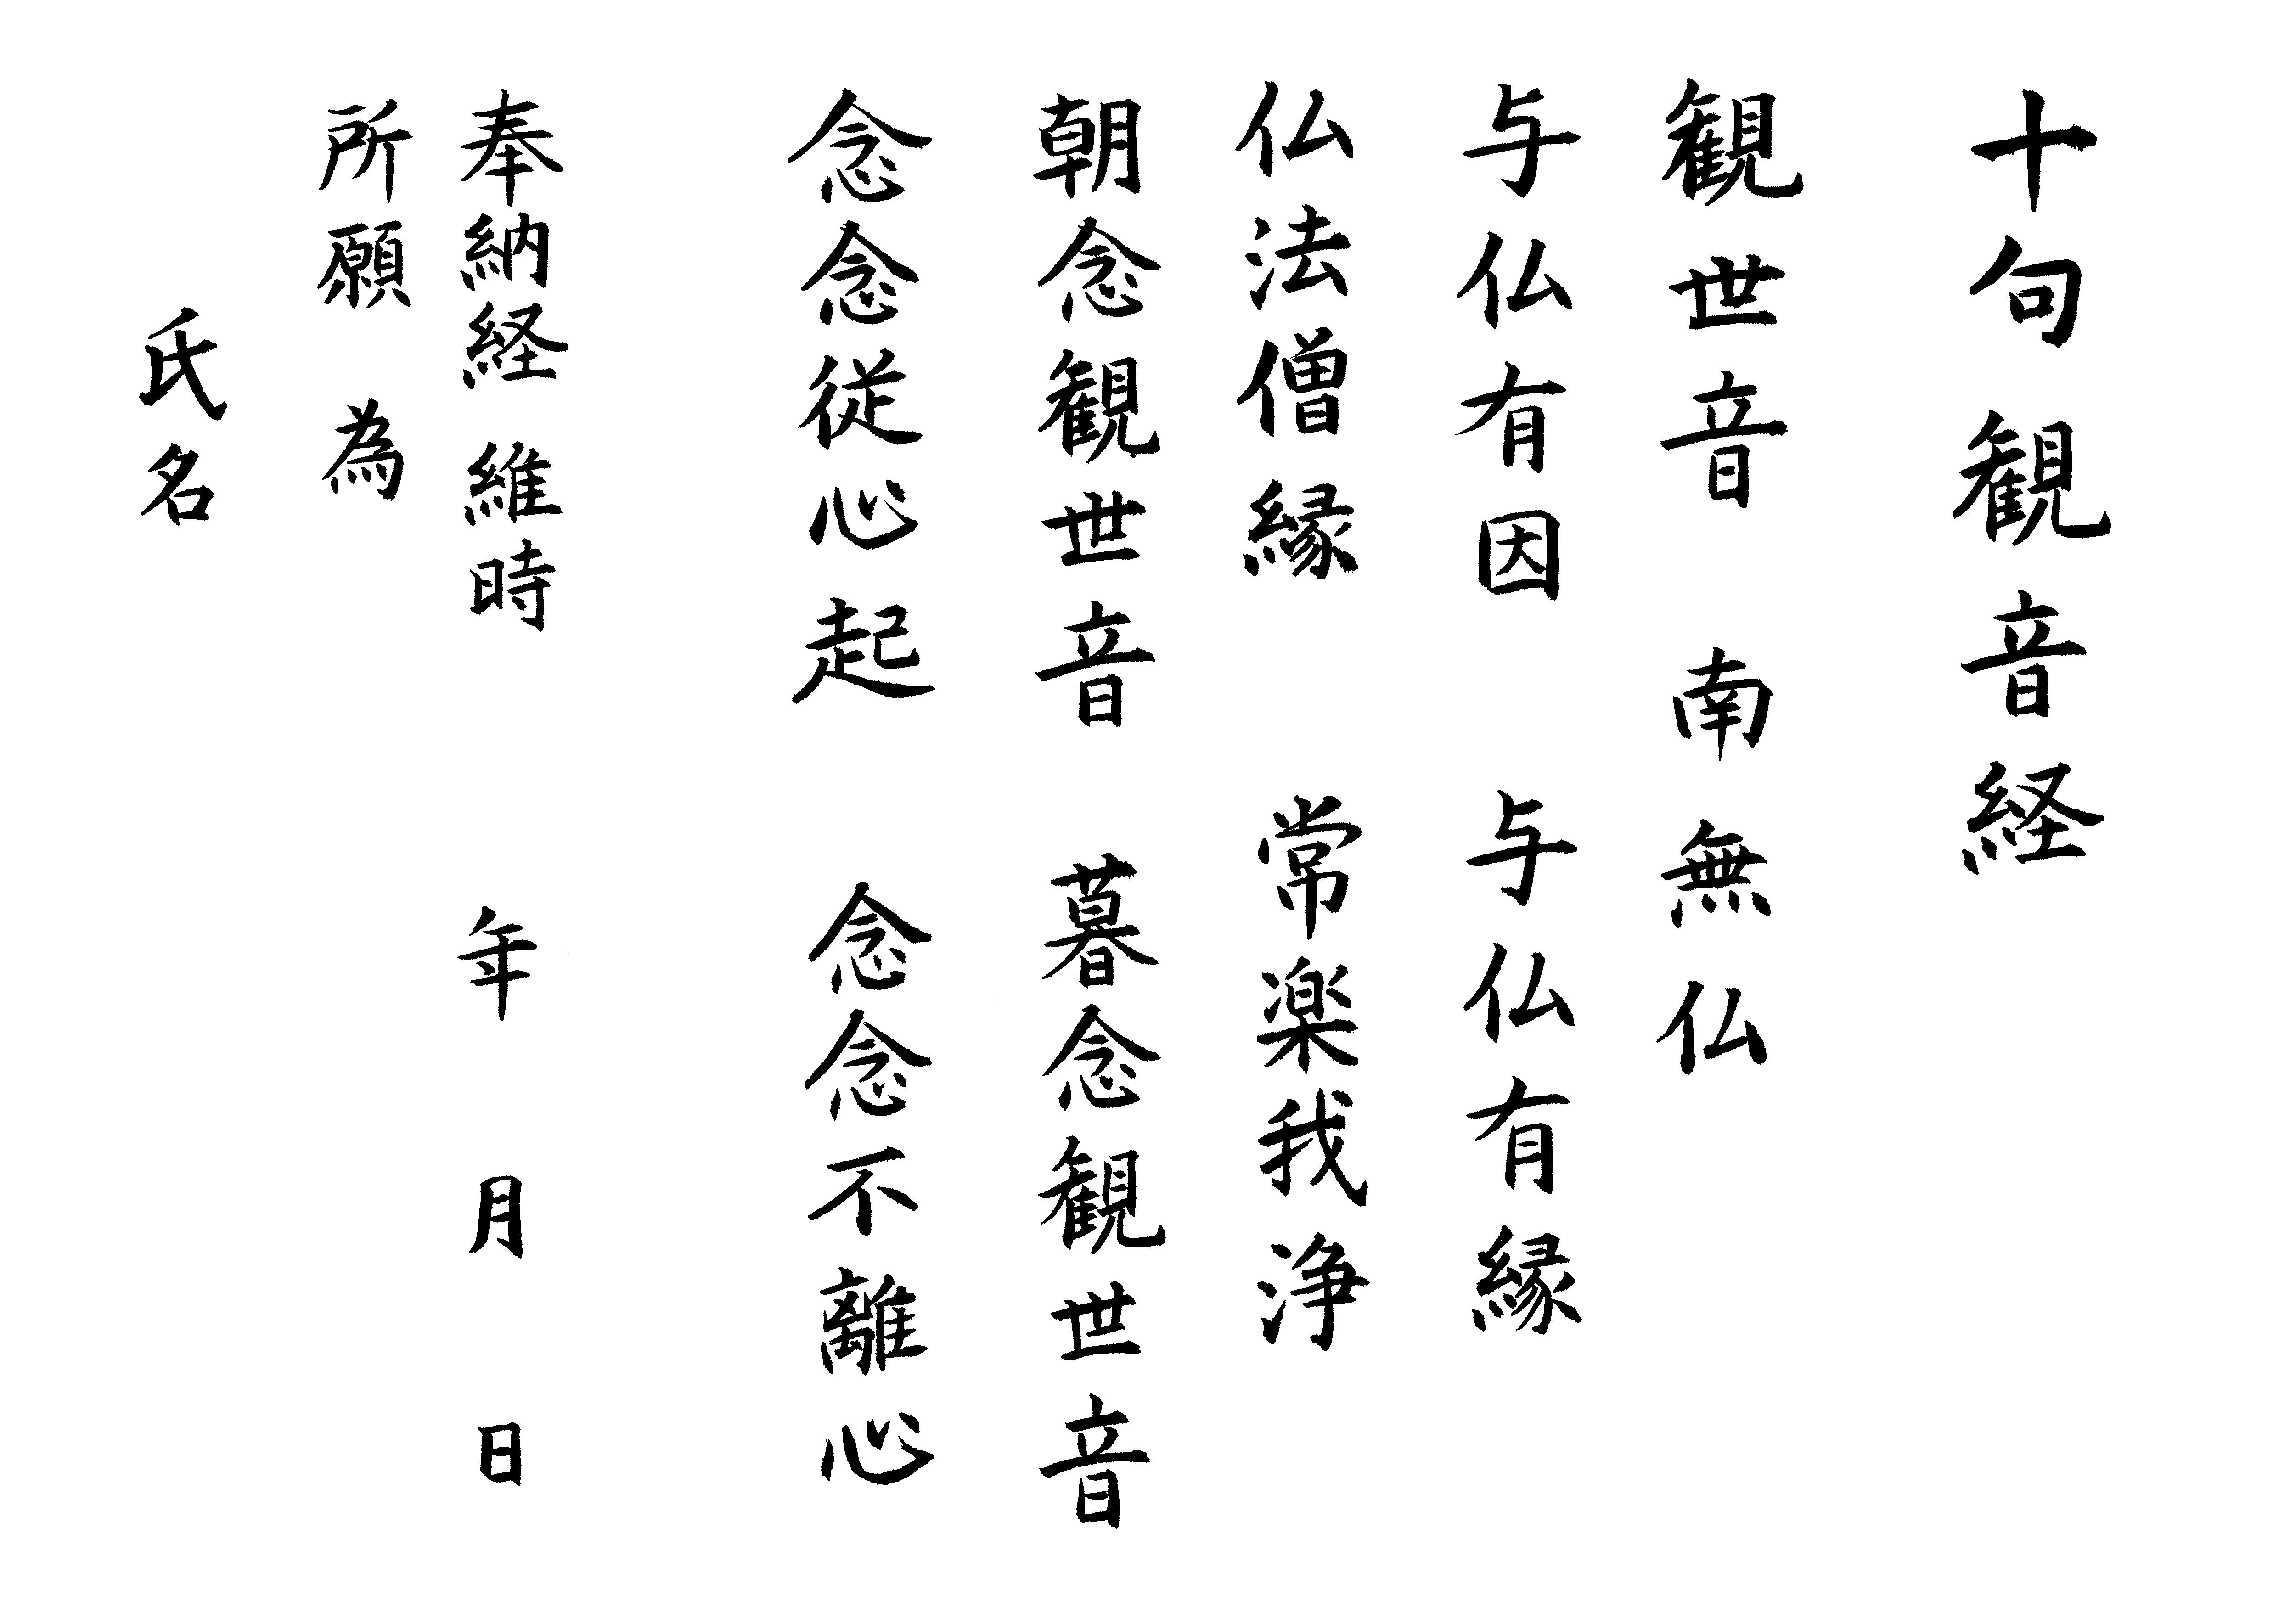 十句観音経
観世音　南無仏
与仏有因　与仏有縁
仏法僧縁　常楽我浄
朝念観世音　暮念観世音
念念従心起　念念不離心
奉納経　維時　年　月　日
所願　為
氏名